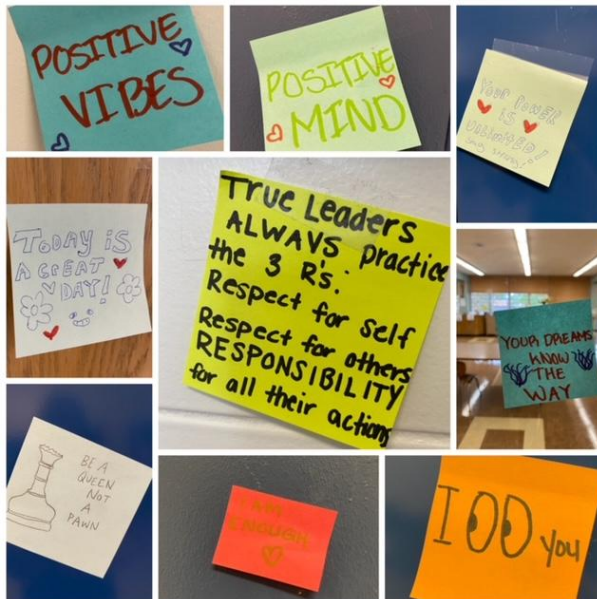 POSITIVE
VIBES
POSITIVE
MIND
YOUR POWER
IS
UNLIMITED!
TODAY IS
A GREAT
DAY!
True Leaders
ALWAYS practice
the 3 Rs:
Respect for self
Respect for others
RESPONSIBILITY
for all their actions
YOUR DREAMS
KNOW
THE
WAY
BE A
QUEEN
NOT
A
PAWN
I AM
ENOUGH
I you